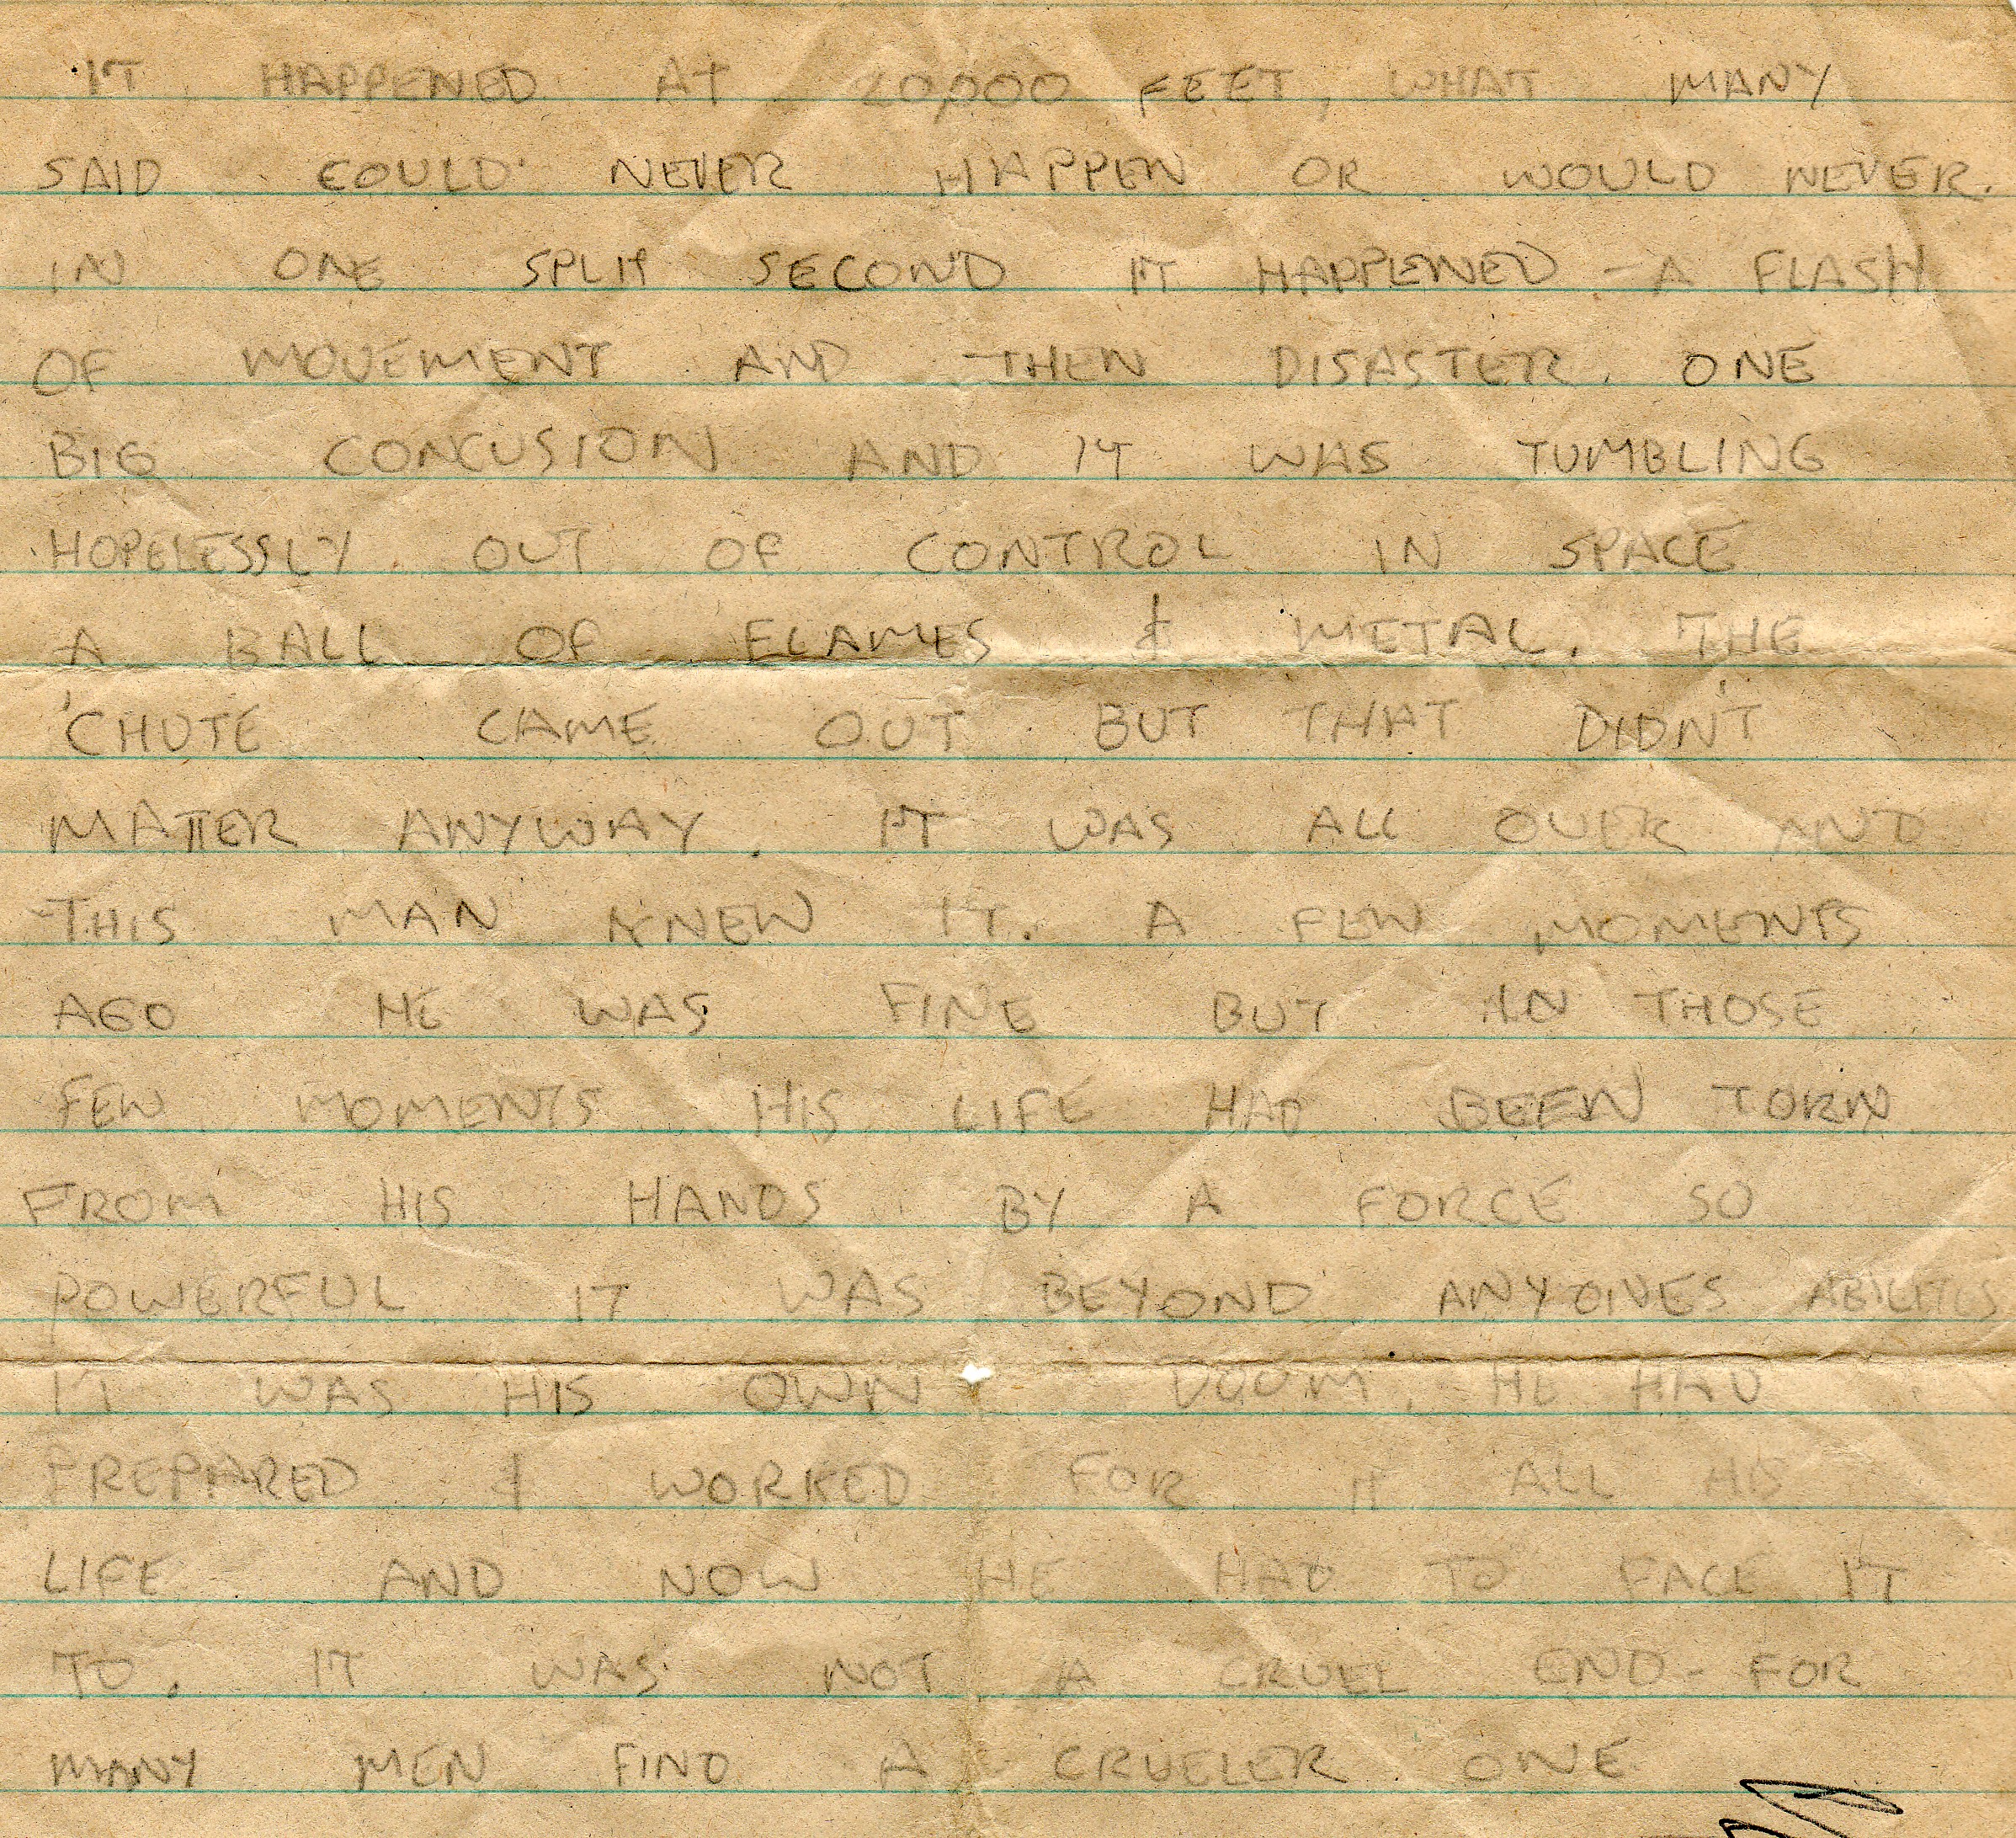 IT HAPPENED AT 20,000 FEET, WHAT MANY
SAID COULD NEVER HAPPEN OR WOULD NEVER.
IN ONE SPLIT SECOND IT HAPPENED - A FLASH
OF MOVEMENT AND THEN DISASTER. ONE
BIG CONCUSION AND IT WAS TUMBLING
HOPELESSLY OUT OF CONTROL IN SPACE
A BALL OF FLAMES & METAL. THE
'CHUTE CAME OUT BUT THAT DIDN'T
MATTER ANYWAY. IT WAS ALL OVER AND
THIS MAN KNEW IT. A FEW MOMENTS
AGO HE WAS FINE BUT IN THOSE
FEW MOMENTS HIS LIFE HAD BEEN TORN
FROM HIS HANDS BY A FORCE SO
POWERFUL IT WAS BEYOND ANYONES ABILITIES
IT WAS HIS OWN DOOM, HE HAD
PREPARED & WORKED FOR IT ALL HIS
LIFE AND NOW HE HAD TO FACE IT
TO. IT WAS NOT A CRUEL END - FOR
MANY MEN FIND A CRUELER ONE